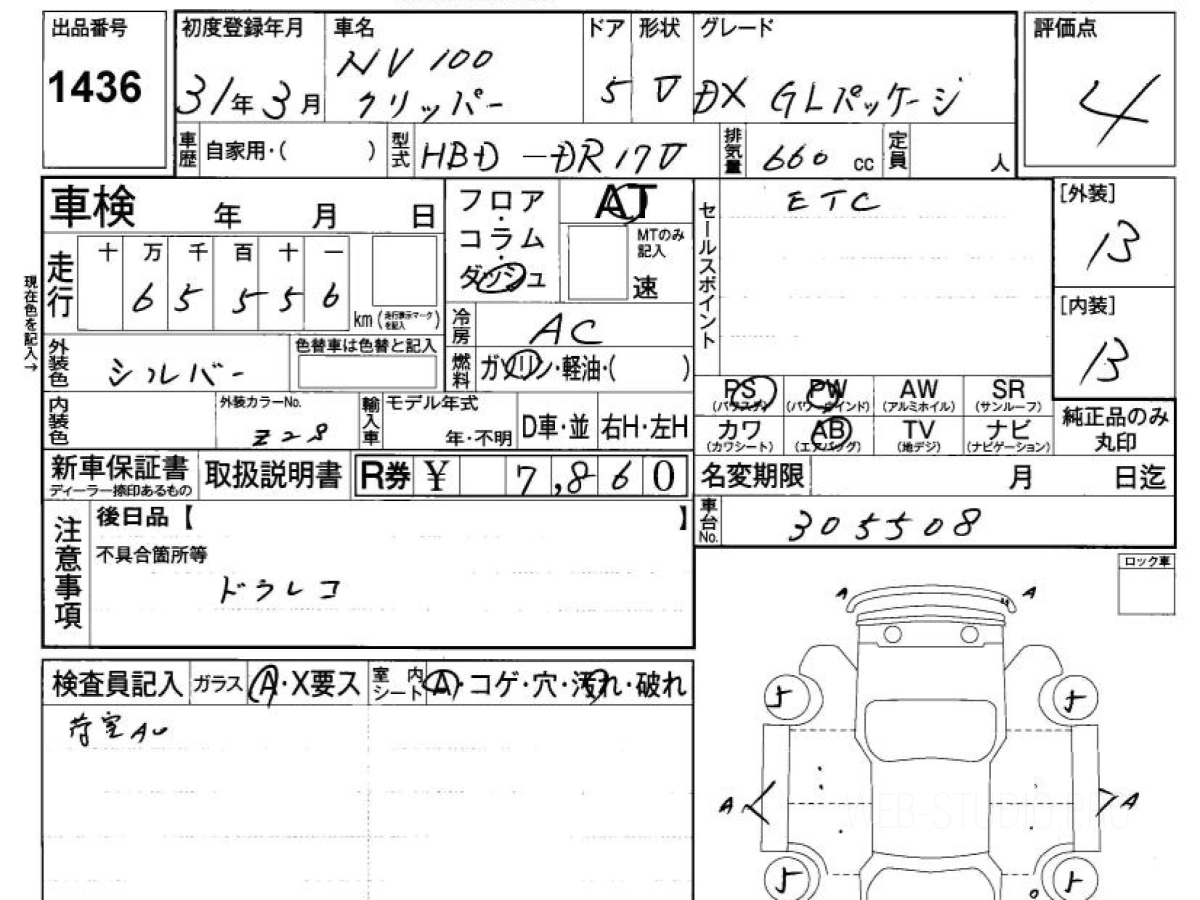 出品番号
1436
初度登録年月
31年3月
車名
NV100
クリッパー
ドア
5
形状
V
グレード
DX GLパッケージ
評価点
4
車歴
自家用・( )
型式
HBD-DR17V
排気量
660 cc
定員
人
車検 年 月 日
走行
十 万 千 百 十 一
6 5 5 5 6
km (走行表示マークを記入)
現在色を記入→
外装色
シルバー
色替車は色替と記入
内装色
外装カラーNo.
Z28
輸入車
モデル年式
年・不明
D車・並
右H・左H
フロア・コラム・ダッシュ
AT
MTのみ記入
速
冷房
AC
燃料
ガソリン・軽油・( )
セールスポイント
ETC
[外装]
B
[内装]
B
PS
(パワステ)
PW
(パワーウインド)
AW
(アルミホイル)
SR
(サンルーフ)
カワ
(カワシート)
AB
(エアバッグ)
TV
(地デジ)
ナビ
(ナビゲーション)
純正品のみ
丸印
新車保証書
ディーラー捺印あるもの
取扱説明書
R券 ¥ 7,860
名変期限 月 日迄
車台No.
305508
注意事項
後日品【 】
不具合箇所等
ドラレコ
ロック車
検査員記入
ガラス
A・X要ス
室内シート
A・コゲ・穴・汚れ・破れ
荷室AU
A
A
5
5
A
A
5
5
WEB-STUDIO.PRO